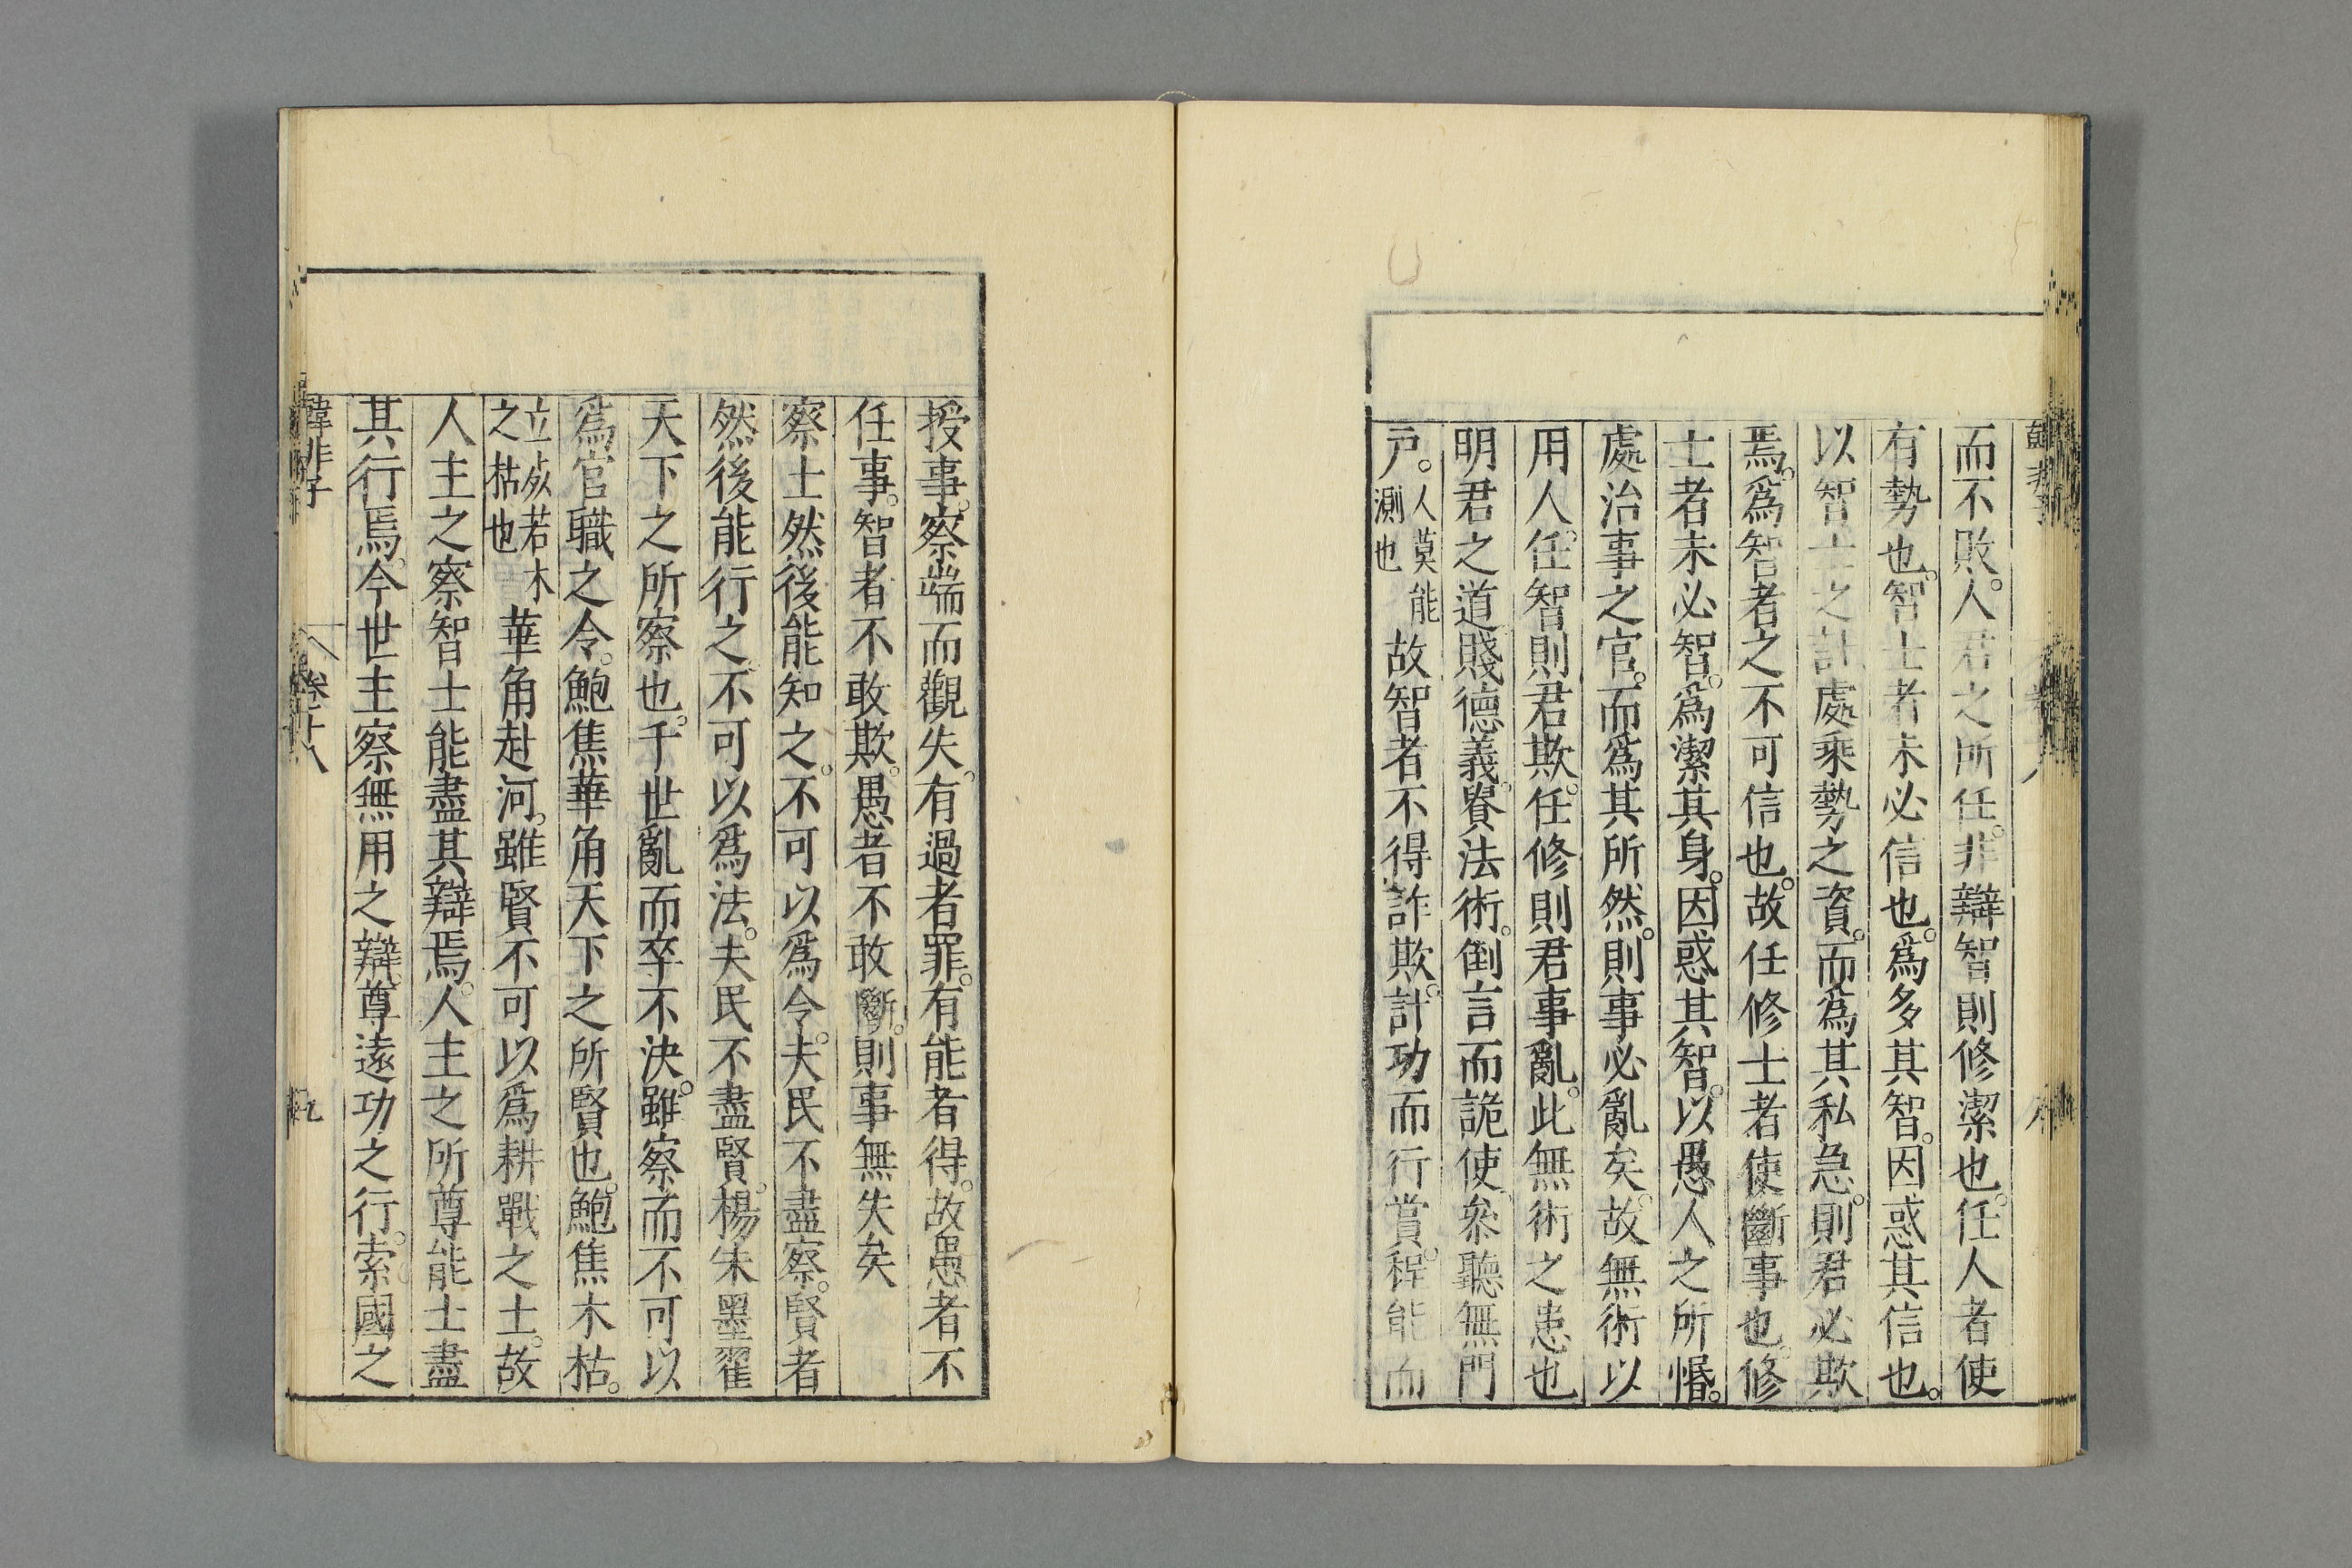 而不敗。人君之所任。非辯智則修潔也。任人者使
有勢也。智士者未必信也。爲多其智。因惑其信也。
以智士之計處乘勢之資。而爲其私急。則君必欺
焉。爲智者之不可信也。故任修士者使斷事也。修
士者未必智。爲潔其身。因惑其智。以愚人之所惛。
處治事之官。而爲其所然。則事必亂矣。故無術以
用人。任智則君欺。任修則君事亂。此無術之患也
明君之道賤德義。貴法術。倒言而詭使。參聽無門
戸。人莫能測也故智者不得詐欺。計功而行賞。程能而
授事。察端而觀失。有過者罪。有能者得。故愚者不
任事。智者不敢欺。愚者不敢斷。則事無失矣
察士然後能知之。不可以爲令。夫民不盡察。賢者
然後能行之。不可以爲法。夫民不盡賢。楊朱墨翟
天下之所察也。千世亂而卒不決。雖察而不可以
爲官職之令。鮑焦華角天下之所賢也。鮑焦木枯。
立死若木之枯也華角赴河。雖賢不可以爲耕戰之士。故
人主之察智士能盡其辯焉。人主之所尊能士盡
其行焉。今世主察無用之辯。尊遠功之行。索國之
韓非子 卷十八 九